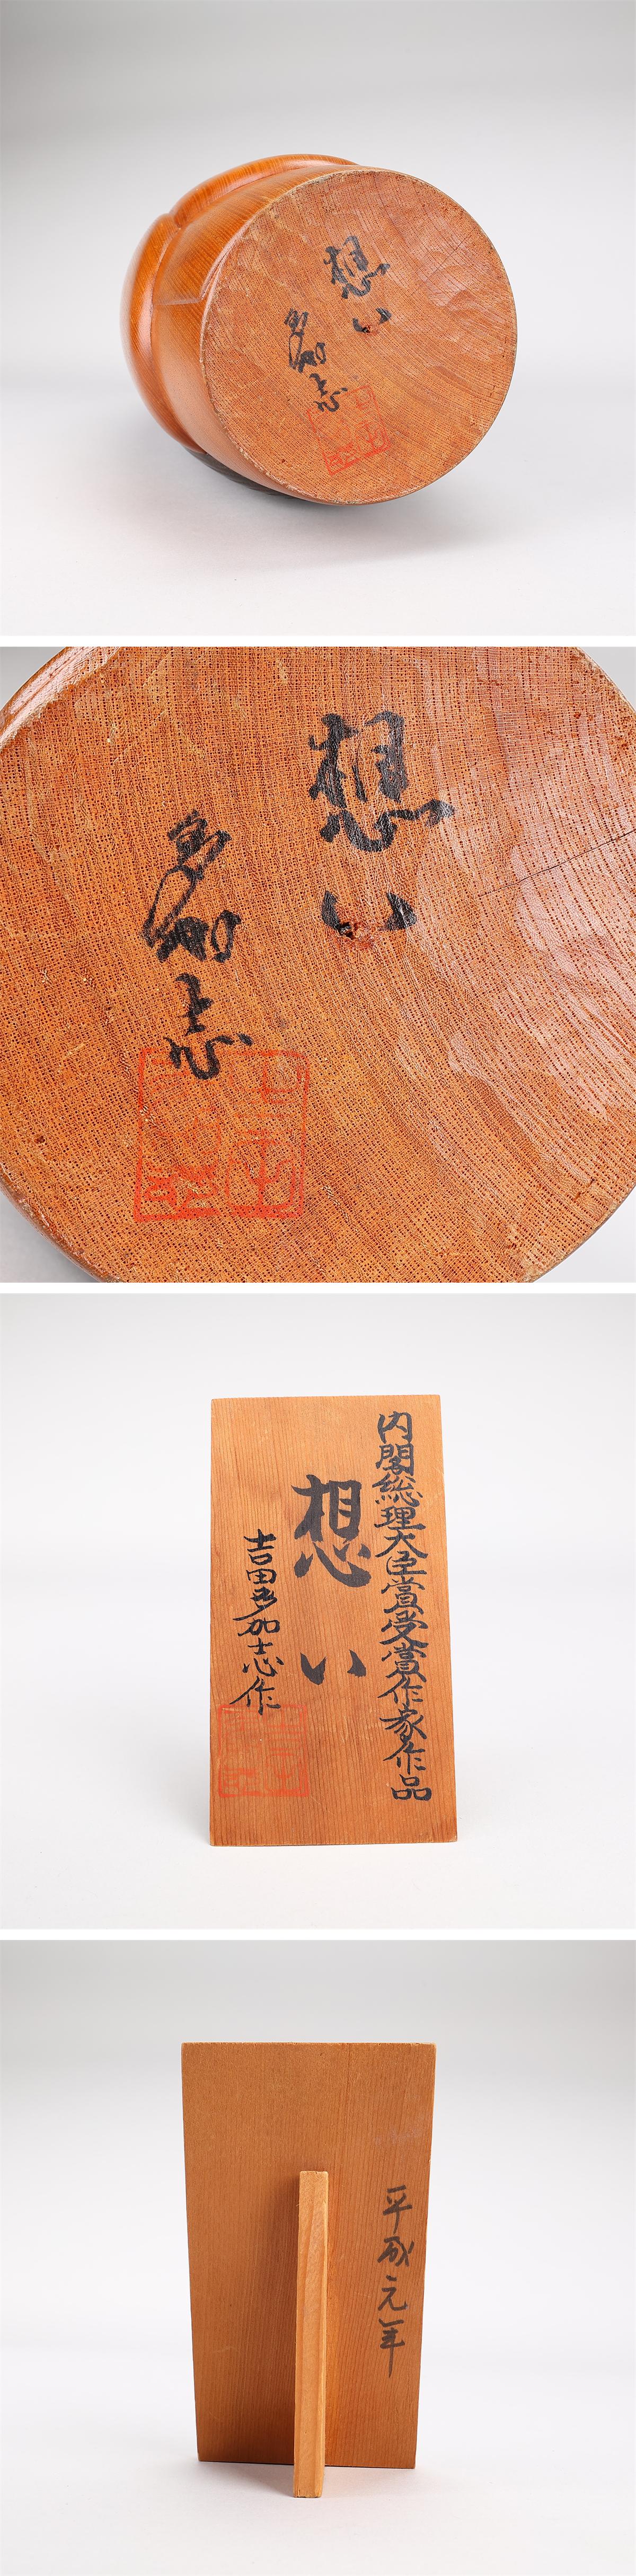 想い
多加志
想い
多加志
内閣総理大臣賞受賞作家作品
想い
吉田多加志作
平成元年